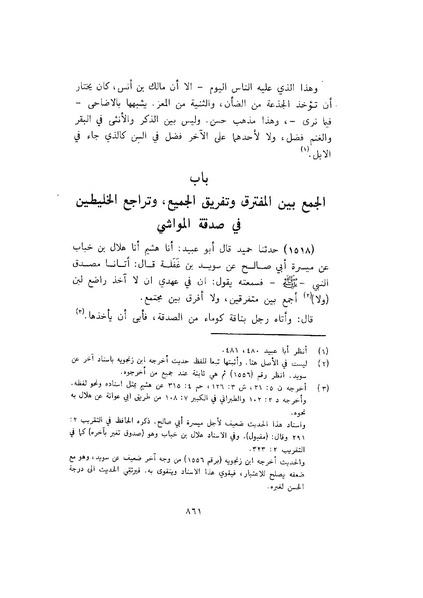 وهذا الذي عليه الناس اليوم – الا أن مالك بن أنس، كان يختار
أن تؤخذ الجذعة من الضأن، والثنية من المعز. يشبهها بالاضاحى –
فيما نرى –، وهذا مذهب حسن. وليس بين الذكر والأنثى في البقر
والغنم فضل، ولا لأحدهما على الآخر فضل في السن كالذي جاء في
الابل.(١)
باب
الجمع بين المفترق وتفريق الجميع، وتراجع الخليطين
في صدقة المواشي
(١٥١٨) حدثنا حميد قال أبو عبيد: أنا هشيم أنا هلال بن خباب
عن ميسرة أبي صالح عن سويد بن غَفَلة قال: أتانا مصدق
النبي – ﷺ – فسمعته يقول: ان في عهدي ان لا آخذ راضع لبن
(ولا)(٢) أجمع بين متفرقين، ولا أفرق بين مجتمع.
قال: وأتاه رجل بناقة كوماء من الصدقة، فأبى أن يأخذها.(٣)
(١) أنظر أبا عبيد ٤٨٠، ٤٨١.
(٢) ليست في الأصل هنا. وأثبتها تبعا للفظ حديث أخرجه ابن زنجويه باسناد آخر عن
سويد. انظر رقم (١٥٥٦) ثم هي ثابتة عند جميع من أخرجوه.
(٣) أخرجه ن ٥: ٢١، ش ٣: ١٢٦، حم ٤: ٣١٥ عن هشيم بمثل اسناده ونحو لفظه.
وأخرجه د ٢: ١٠٢ والطبراني في الكبير ٧: ١٠٨ من طريق أبي عوانة عن هلال به
نحوه.
واسناد هذا الحديث ضعيف لأجل ميسرة أبي صالح. ذكره الحافظ في التقريب ٢:
٢٩١ وقال: (مقبول). وفي الاسناد هلال بن خباب وهو (صدوق تغير بآخره) كما في
التقريب ٢: ٣٢٣.
والحديث أخرجه ابن زنجويه (برقم ١٥٥٦) من وجه آخر ضعيف عن سويد، وهو مع
ضعفه يصلح للاعتبار، فيقوي هذا الاسناد ويتقوى به. فيرتقي الحديث الى درجة
الحسن لغيره.
٨٦١